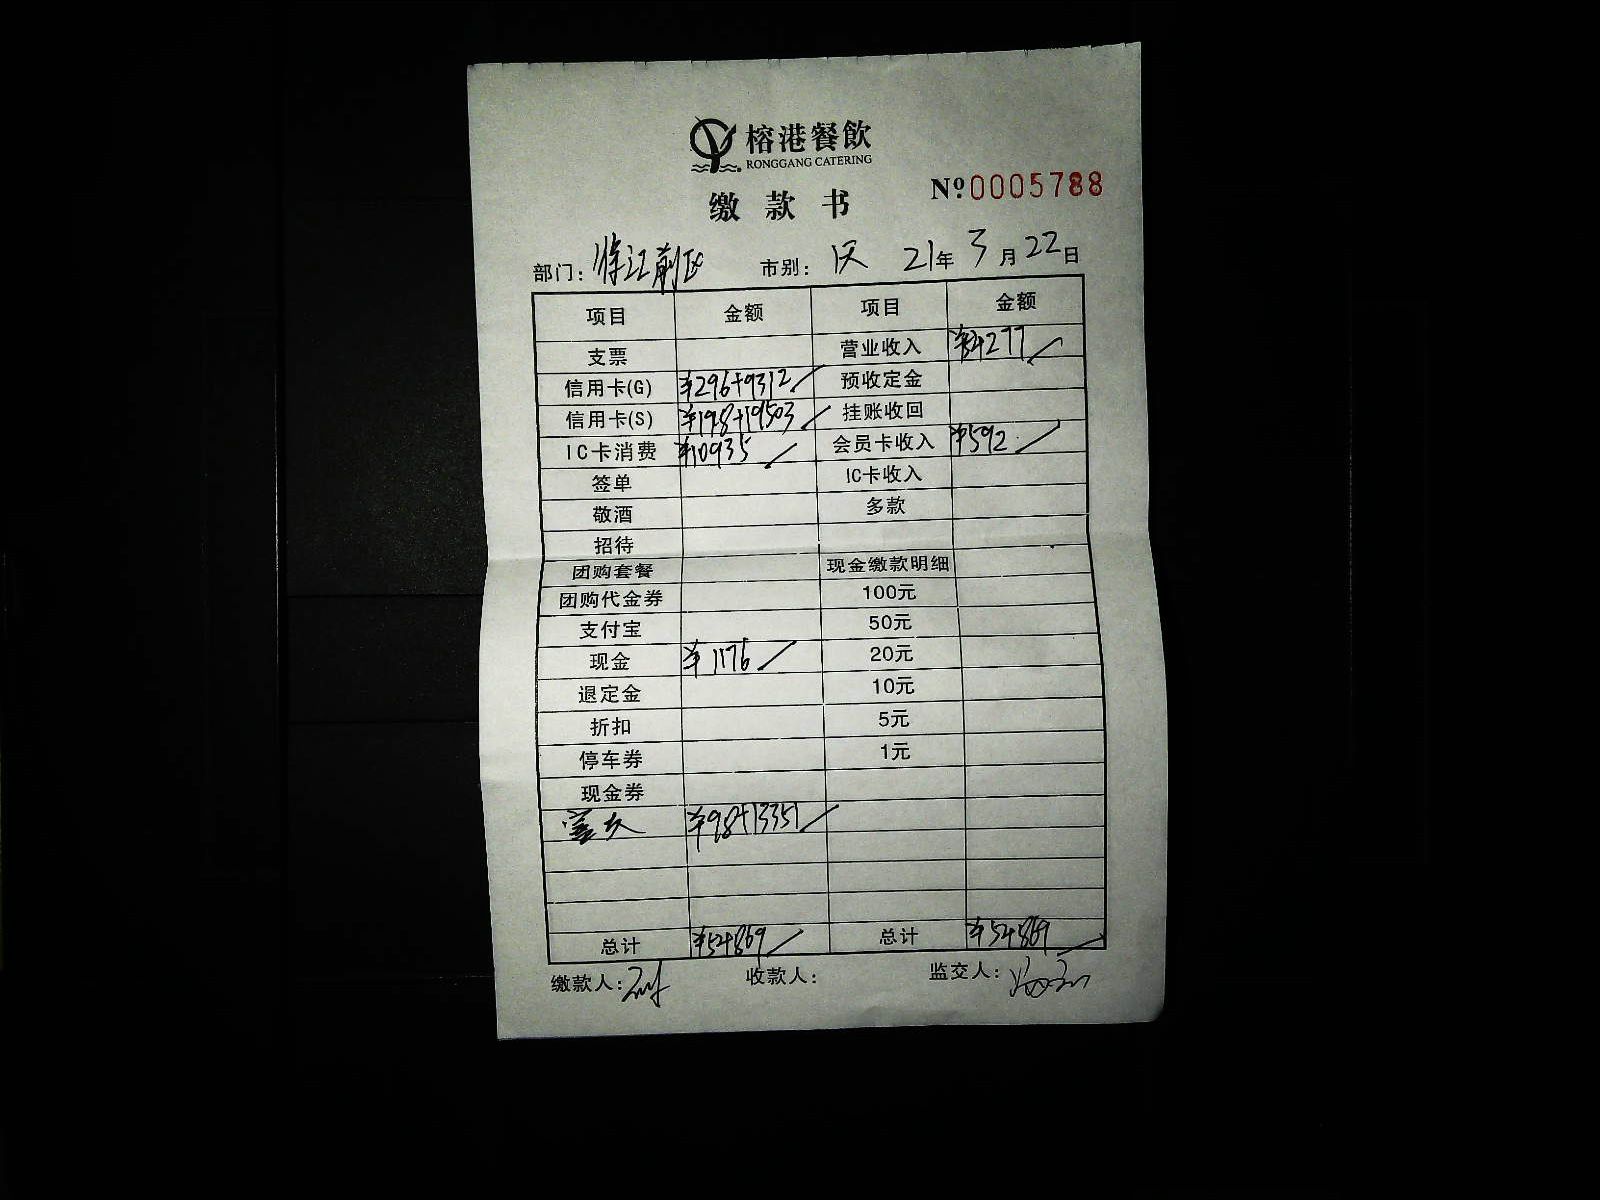 榕港餐飲
RONGGANG CATERING
缴款书
Nº.0005788
部门: 江前区 市别: 21年3月22日
项目 金额 项目 金额
支票 营业收入 ¥54277
信用卡(G) ¥296+9312 预收定金
信用卡(S) ¥198+19503 挂账收回
IC卡消费 ¥10935 会员卡收入 ¥592
签单 IC卡收入
敬酒 多款
招待
团购套餐 现金缴款明细
团购代金券 100元
支付宝 50元
现金 ¥1176 20元
退定金 10元
折扣 5元
停车券 1元
现金券
¥98+13351
总计 ¥54869 总计 ¥54869
缴款人: 收款人: 监交人: